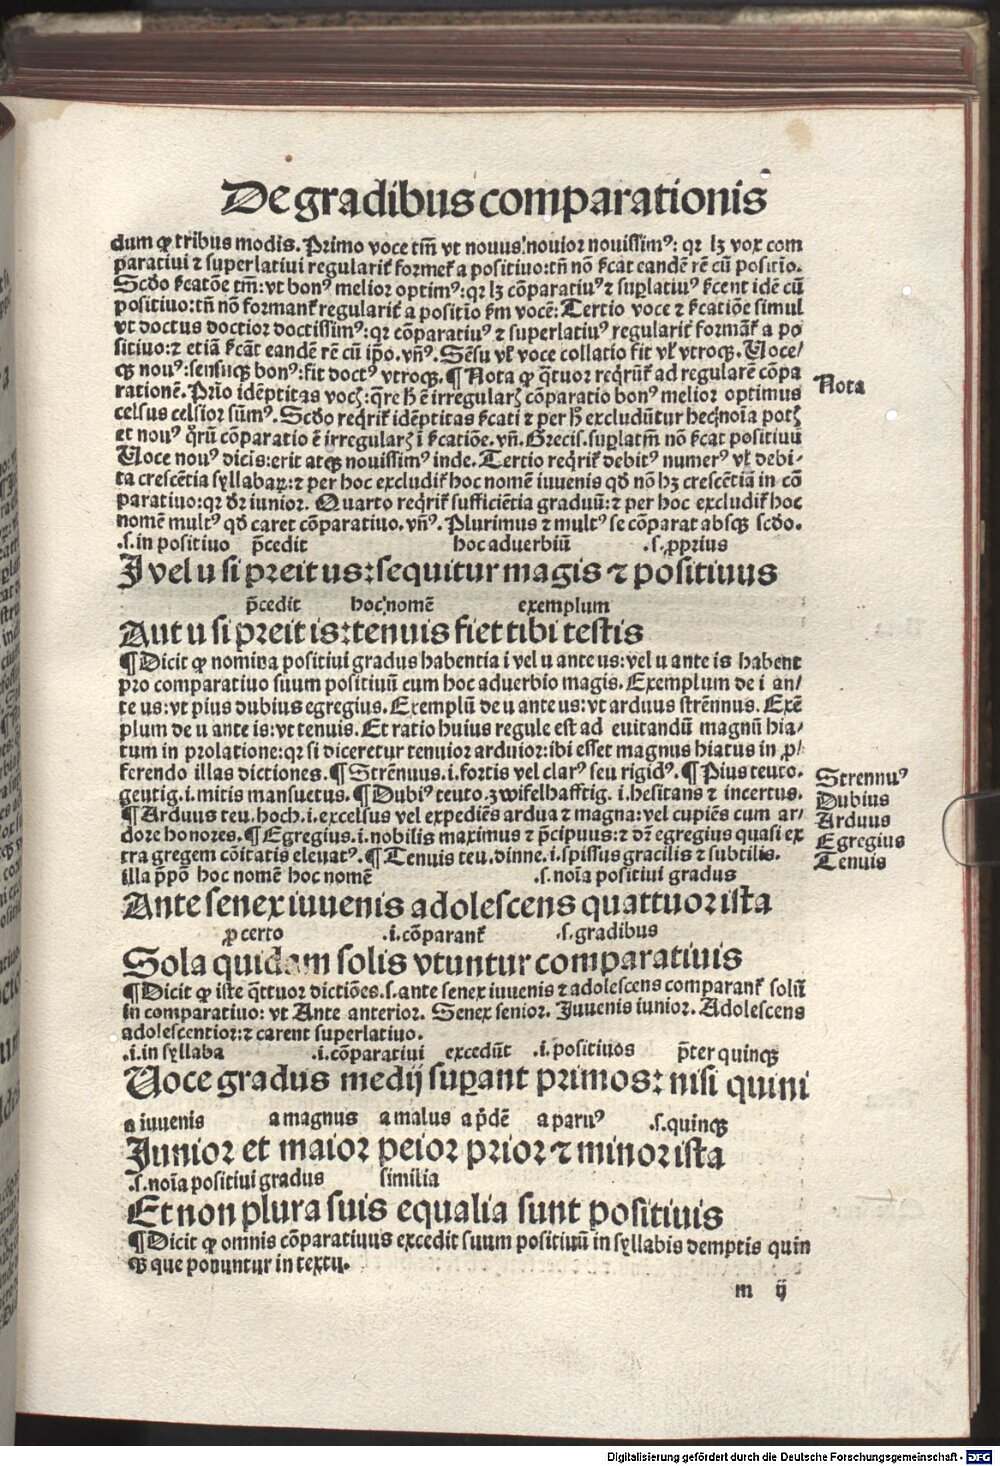 De gradibus comparationis
dum ꝙ tribus modis. Primo voce tm̄ vt novus: novior novissimꝰ: qr lꝫ vox com
parativi ⁊ superlativi regularit̉ formet̉ a positivo: tn̄ nō ſcat eandē rē cū positio.
Scḋo ſcatōe tm̄: vt bonꝰ melior optimꝰ: qr lꝫ cōparativꝰ ⁊ suꝑlativꝰ ſcent idē cū
positivo: tn̄ nō formant̉ regularit̉ a positio ſm vocē: Tertio voce ⁊ ſcatiōe simul
vt doctus doctior doctissimꝰ: qr cōparativꝰ ⁊ superlativꝰ regularit̉ formāt̉ a po
sitivo: ⁊ etiā ſcāt eandē rē cū ip̄o. vn̄ꝰ. Sēsu vl̉ voce collatio fit vl̉ vtroqꝫ. Voce/
qꝫ novꝰ: sensuqꝫ bonꝰ: fit doctꝰ vtroqꝫ. ¶ Nota ꝙ q̄tuor reqr̄ūt̉ ad regularē cōpa
rationē. Prīo idēptitas vocꝭ: q̄re hꝭ ē irregularꝭ cōparatio bonꝰ melior optimus
celsus celsior sūmꝰ. Scḋo reqr̄it̉ idēptitas ſcati ⁊ per hꝭ excludūtur hec noīa potꝭ
et novꝰ q̄rū cōparatio ē irregularꝭ ī ſcatiōe. vn̄. Grecis. suꝑlatm̄ nō ſcat positivū
Voce novꝰ dicis: erit atqꝫ novissimꝰ inde. Tertio reqr̄it̉ debitꝰ numerꝰ vl̉ debi-
ta crescētia syllabaꝝ: ⁊ per hoc excludit̉ hoc nomē iuvenis qḋ nō hꝫ crescētiā in cō
parativo: qr dr̄ iunior. Quarto reqr̄it̉ sufficiētia graduū: ⁊ per hoc excludit̉ hoc
nomē multꝰ qḋ caret cōparativo. vn̄ꝰ. Plurimus ⁊ multꝰ se cōparat absqꝫ scḋo.
Nota
.s. in positivo p̄cedit hoc adverbiū .s. ꝓprius
I vel u si preit us: sequitur magis ⁊ positivus
p̄cedit hoc nomē exemplum
Aut u si preit is: tenuis fiet tibi testis
¶ Dicit ꝙ nomina positivi gradus habentia i vel u ante us: vel u ante is habent
pro comparativo suum positivū cum hoc adverbio magis. Exemplum de i an/
te us: vt pius dubius egregius. Exemplū de u ante us: vt arduus strēnnus. Exē
plum de u ante is: vt tenuis. Et ratio huius regule est ad evitandū magnū hia/
tum in prolatione: qr si diceretur tenuior arduior: ibi esset magnus hiatus in ꝓ/
ferendo illas dictiones. ¶ Strēnuus .i. fortis vel clarꝰ seu rigidꝰ. ¶ Pius teuto.
geutig .i. mitis mansuetus. ¶ Dubiꝰ teuto. zwifelhafftig .i. hesitans ⁊ incertus.
¶ Arduus teu. hoch .i. excelsus vel expediēs ardua ⁊ magna: vel cupiēs cum ar/
dore honores. ¶ Egregius .i. nobilis maximus ⁊ p̄cipuus: ⁊ dr̄ egregius quasi ex
tra gregem cōitatis elevatꝰ. ¶ Tenuis teu. dinne .i. spissus gracilis ⁊ subtilis.
Strennuꝰ
Dubius
Arduus
Egregius
Tenuis
illa p̄pō hoc nomē hoc nomē .s. noīa positivi gradus
Ante senex iuvenis adolescens quattuor ista
ꝓ certo .i. cōparant̉ .s. gradibus
Sola quidam solis vtuntur comparativis
¶ Dicit ꝙ iste q̄ttuor dictiōes .s. ante senex iuvenis ⁊ adolescens comparant̉ solū
in comparativo: vt Ante anterior. Senex senior. Iuvenis iunior. Adolescens
adolescentior: ⁊ carent superlativo.
.i. in syllaba .i. cōparativi excedūt .i. positivos p̄ter quinqꝫ
Voce gradus medij suꝑant primos: nisi quini
a iuvenis a magnus a malus a p̄dē a parvꝰ .s. quinqꝫ
Iunior et maior peior prior ⁊ minor ista
.s. noīa positivi gradus similia
Et non plura suis equalia sunt positivis
¶ Dicit ꝙ omnis cōparativus excedit suum positivū in syllabis demptis quin
qꝫ que ponuntur in textu.
m ij
Digitalisierung gefördert durch die Deutsche Forschungsgemeinschaft - DFG